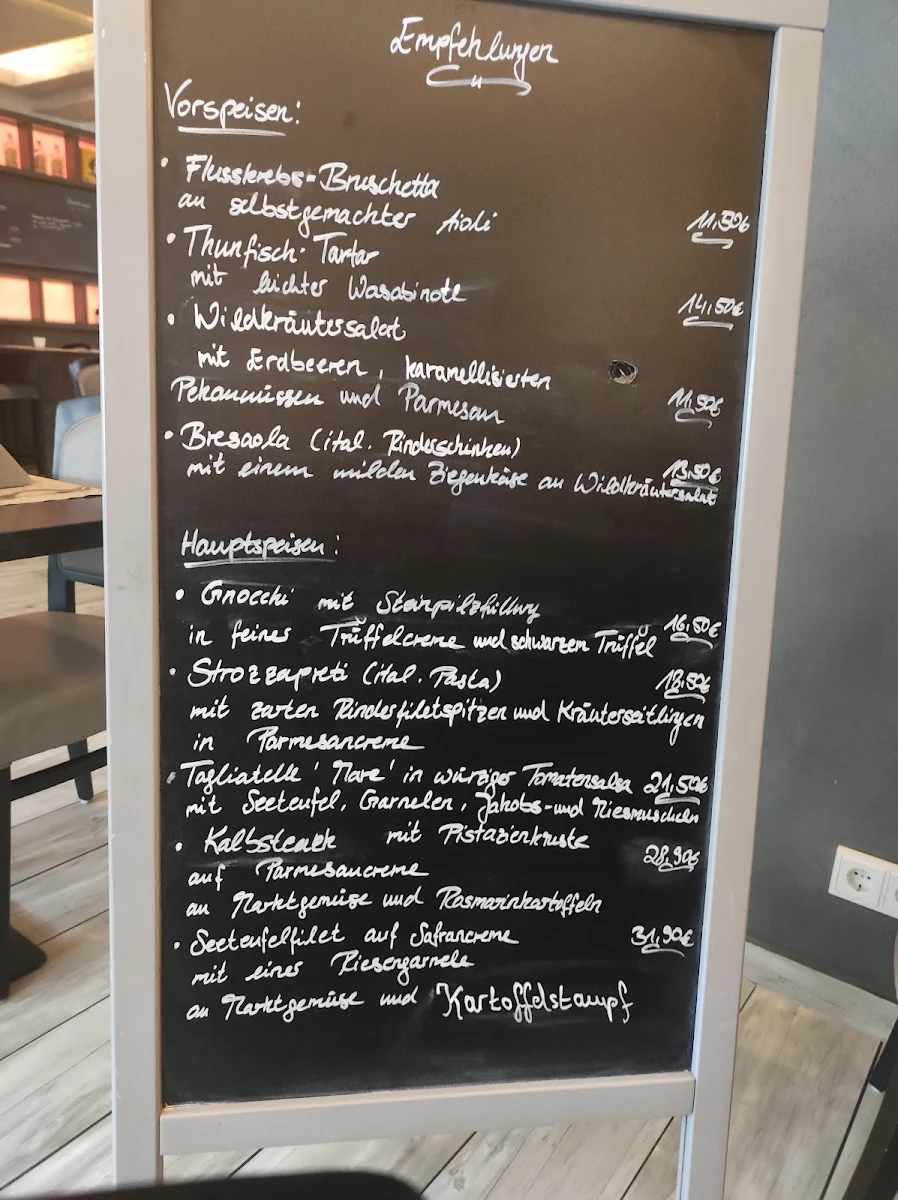 Empfehlungen
Vorspeisen:
• Flusskrebs-Bruschetta
an selbstgemachter Aioli 11,50€
• Thunfisch-Tartar
mit leichter Wasabinote 14,50€
• Wildkräutersalat
mit Erdbeeren, karamellisierten
Pekannüssen und Parmesan 11,50€
• Bresaola (ital. Rinderschinken) 13,50€
mit einem milden Ziegenkäse an Wildkräutersalat
Hauptspeisen:
• Gnocchi mit Steinpilzfüllung
in feiner Trüffelcreme und schwarzem Trüffel 16,50€
• Strozzapreti (ital. Pasta) 18,50€
mit zarten Rinderfiletspitzen und Kräuterseitlingen
in Parmesancreme
• Tagliatelle 'Mare' in würziger Tomatensalsa 21,50€
mit Seeteufel, Garnelen, Jakobs- und Miesmuscheln
• Kalbsteak mit Pistazienkruste 28,90€
auf Parmesancreme
an Marktgemüse und Rosmarinkartoffeln
• Seeteufelfilet auf Safrancreme 31,90€
mit einer Riesengarnele
an Marktgemüse und Kartoffelstampf